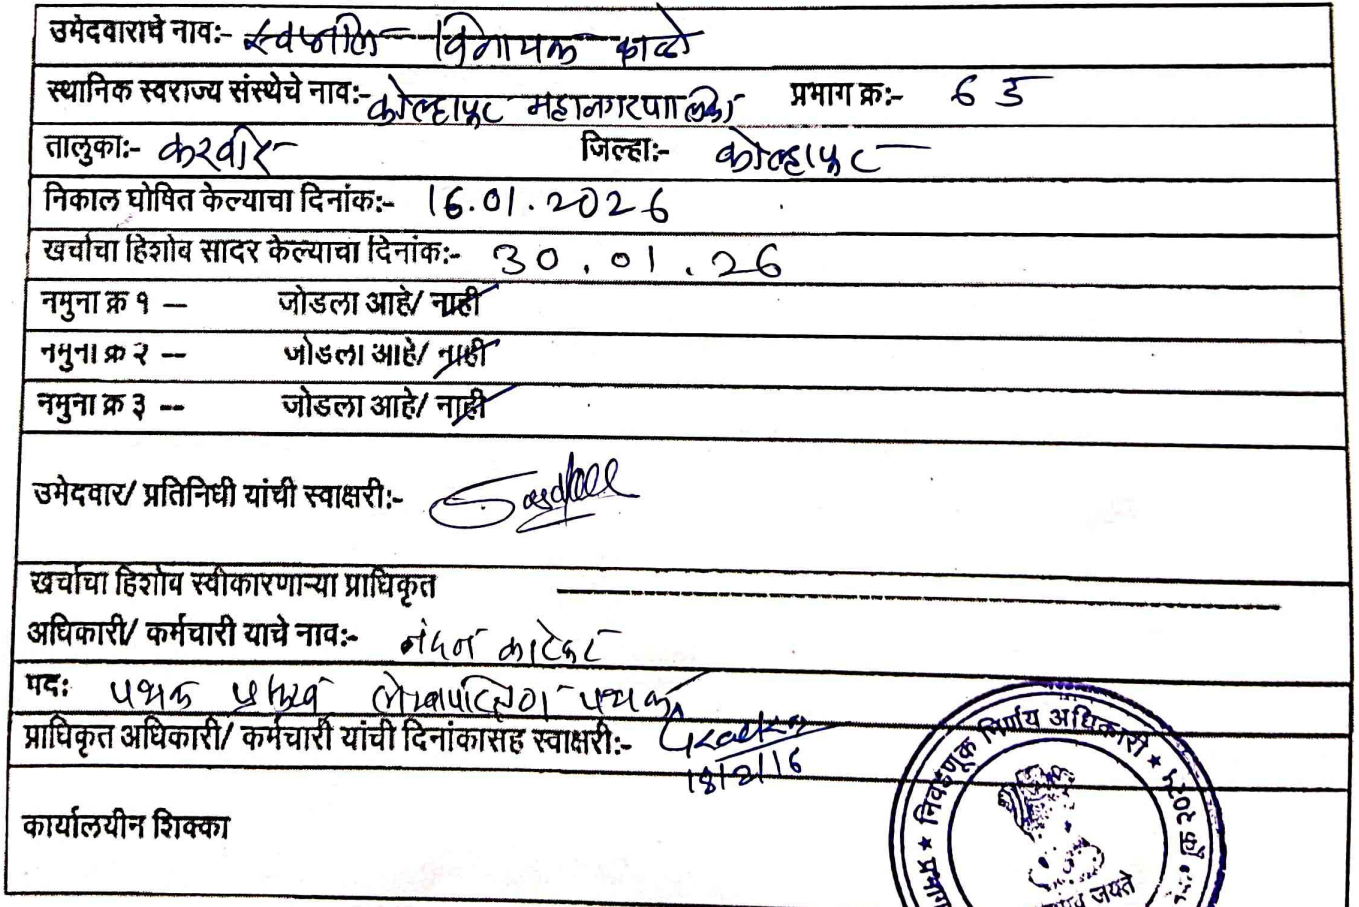 उमेदवाराचे नाव:- स्वप्नील विनायक काळे
स्थानिक स्वराज्य संस्थेचे नाव:- कोल्हापूर महानगरपालिका प्रभाग क्र:- 6 ड
तालुका:- करवीर जिल्हा:- कोल्हापूर
निकाल घोषित केल्याचा दिनांक:- 16.01.2026
खर्चाचा हिशोब सादर केल्याचा दिनांक:- 30.01.26
नमुना क्र १ -- जोडला आहे/ नाही
नमुना क्र २ -- जोडला आहे/ नाही
नमुना क्र ३ -- जोडला आहे/ नाही
उमेदवार/ प्रतिनिधी यांची स्वाक्षरी:-
खर्चाचा हिशोब स्वीकारणाऱ्या प्राधिकृत
अधिकारी/ कर्मचारी याचे नाव:- नंदन काटेकर
पद: पथक प्रमुख लेखापरिक्षण पथक
प्राधिकृत अधिकारी/ कर्मचारी यांची दिनांकासह स्वाक्षरी:-
कार्यालयीन शिक्का
★ निवडणूक निर्णय अधिकारी ★
जयते